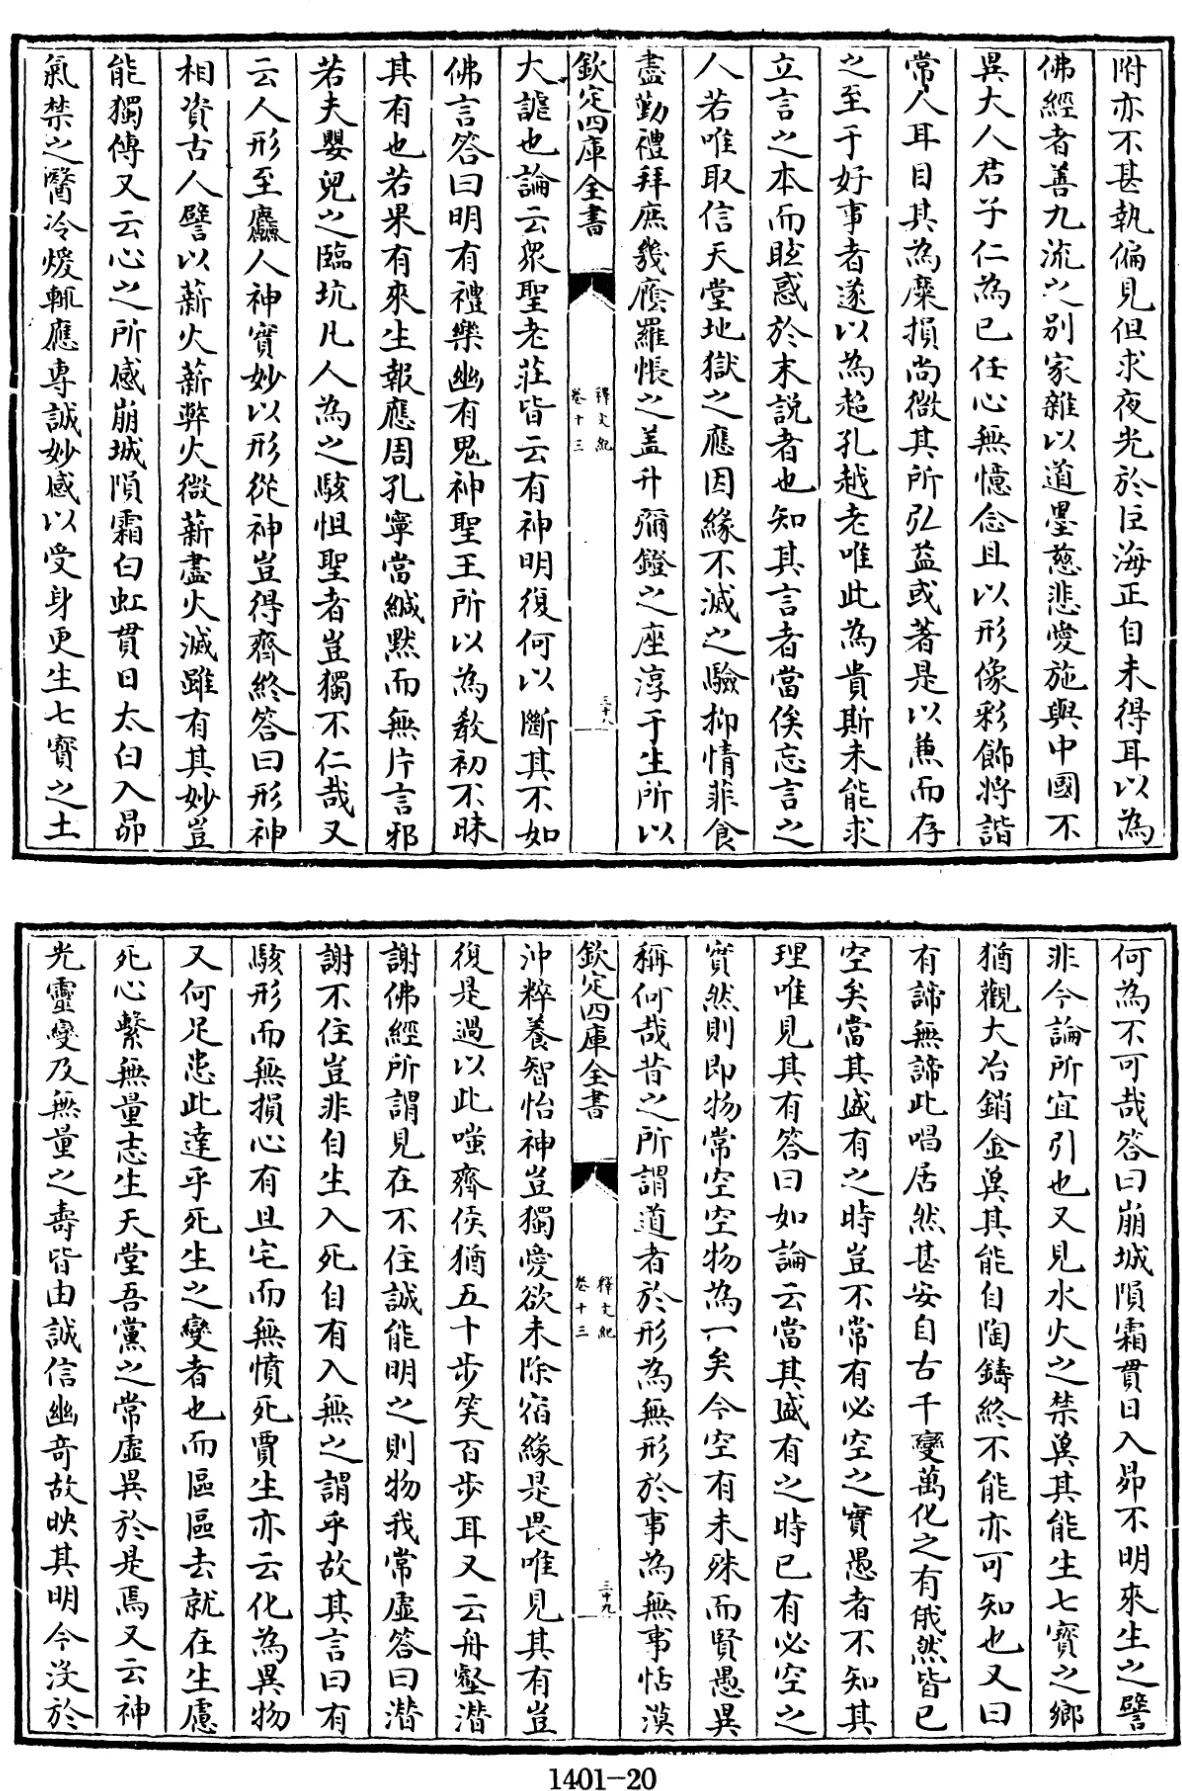 附亦不甚執偏見但求夜光於巨海正自未得耳以為
佛經者善九流之别家雜以道墨慈悲愛施與中國不
異大人君子仁為已任心無憶念且以形像彩飾將諧
常人耳目其為糜損尚微其所弘益或著是以兼而存
之至于好事者遂以為超孔越老唯此為貴斯未能求
立言之本而眩惑於末説者也知其言者當俟忘言之
人若唯取信天堂地獄之應因緣不滅之驗抑情菲食
盡勤禮拜庶幾廕羅帳之盖升彌鐙之座淳于生所以
欽定四庫全書
釋文紀
卷十三
三十八
大謔也論云衆聖老莊皆云有神明復何以斷其不如
佛言答曰明有禮樂幽有鬼神聖王所以為教初不昧
其有也若果有來生報應周孔寧當緘黙而無片言邪
若夫嬰兒之臨坑凡人為之駭怛聖者豈獨不仁哉又
云人形至麤人神實妙以形從神豈得齊終答曰形神
相資古人譬以薪火薪弊火微薪盡火滅雖有其妙豈
能獨傳又云心之所感崩城隕霜白虹貫日太白入昴
氣禁之醫冷煖輒應専誠妙感以受身更生七寳之土
何為不可哉答曰崩城隕霜貫日入昴不明來生之譬
非今論所宜引也又見水火之禁兾其能生七寳之鄉
猶觀大冶銷金兾其能自陶鑄終不能亦可知也又曰
有諦無諦此唱居然甚安自古千變萬化之有俄然皆已
空矣當其盛有之時豈不常有必空之實愚者不知其
理唯見其有答曰如論云當其盛有之時已有必空之
實然則即物常空空物為一矣今空有未殊而賢愚異
稱何哉昔之所謂道者於形為無形於事為無事恬漠
欽定四庫全書
釋文紀
卷十三
三十九
沖粹養智怡神豈獨愛欲未除宿緣是畏唯見其有豈
復是過以此嗤齊侯猶五十步笑百步耳又云舟壑潛
謝佛經所謂見在不住誠能明之則物我常虛答曰潛
謝不住豈非自生入死自有入無之謂乎故其言曰有
駭形而無損心有旦宅而無憤死賈生亦云化為異物
又何足患此達乎死生之變者也而區區去就在生慮
死心繫無量志生天堂吾黨之常虛異於是焉又云神
光靈變及無量之壽皆由誠信幽奇故映其明今没於
1401—20